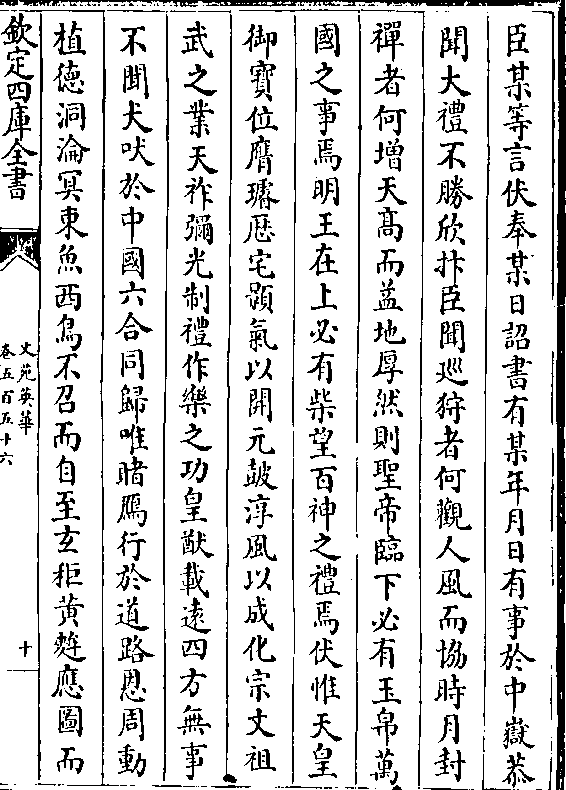 臣某等言伏奉某日詔書有某年月日有事於中嶽恭
聞大禮不勝欣抃臣聞巡狩者何觀人風而協時月封
禪者何增天高而益地厚然則聖帝臨下必有玉帛萬
國之事焉明王在上必有柴望百神之禮焉伏惟天皇
御寶位膺璿厯宅顥氣以開元皷淳風以成化宗文祖
武之業天祚彌光制禮作樂之功皇猷載遠四方無事
不聞犬吠於中國六合同歸唯睹鴈行於道路恩周動
植德洞淪冥東魚西鳥不召而自至玄秬黄麰應圖而
欽定四庫全書
文苑英華
卷五百五十六
十